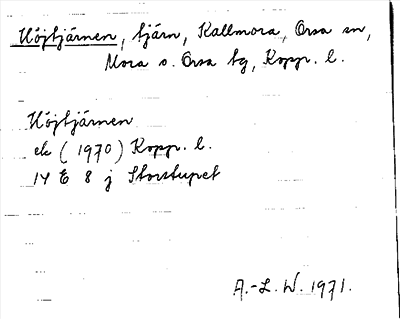 Höjtjärnen, tjärn, Kallmora, Orsa sn,
Mora o. Orsa tg, Kopp. l.
Höjtjärnen
ek (1970) Kopp. l.
14 E 8 j Storstupet
A.-L. W. 1971.